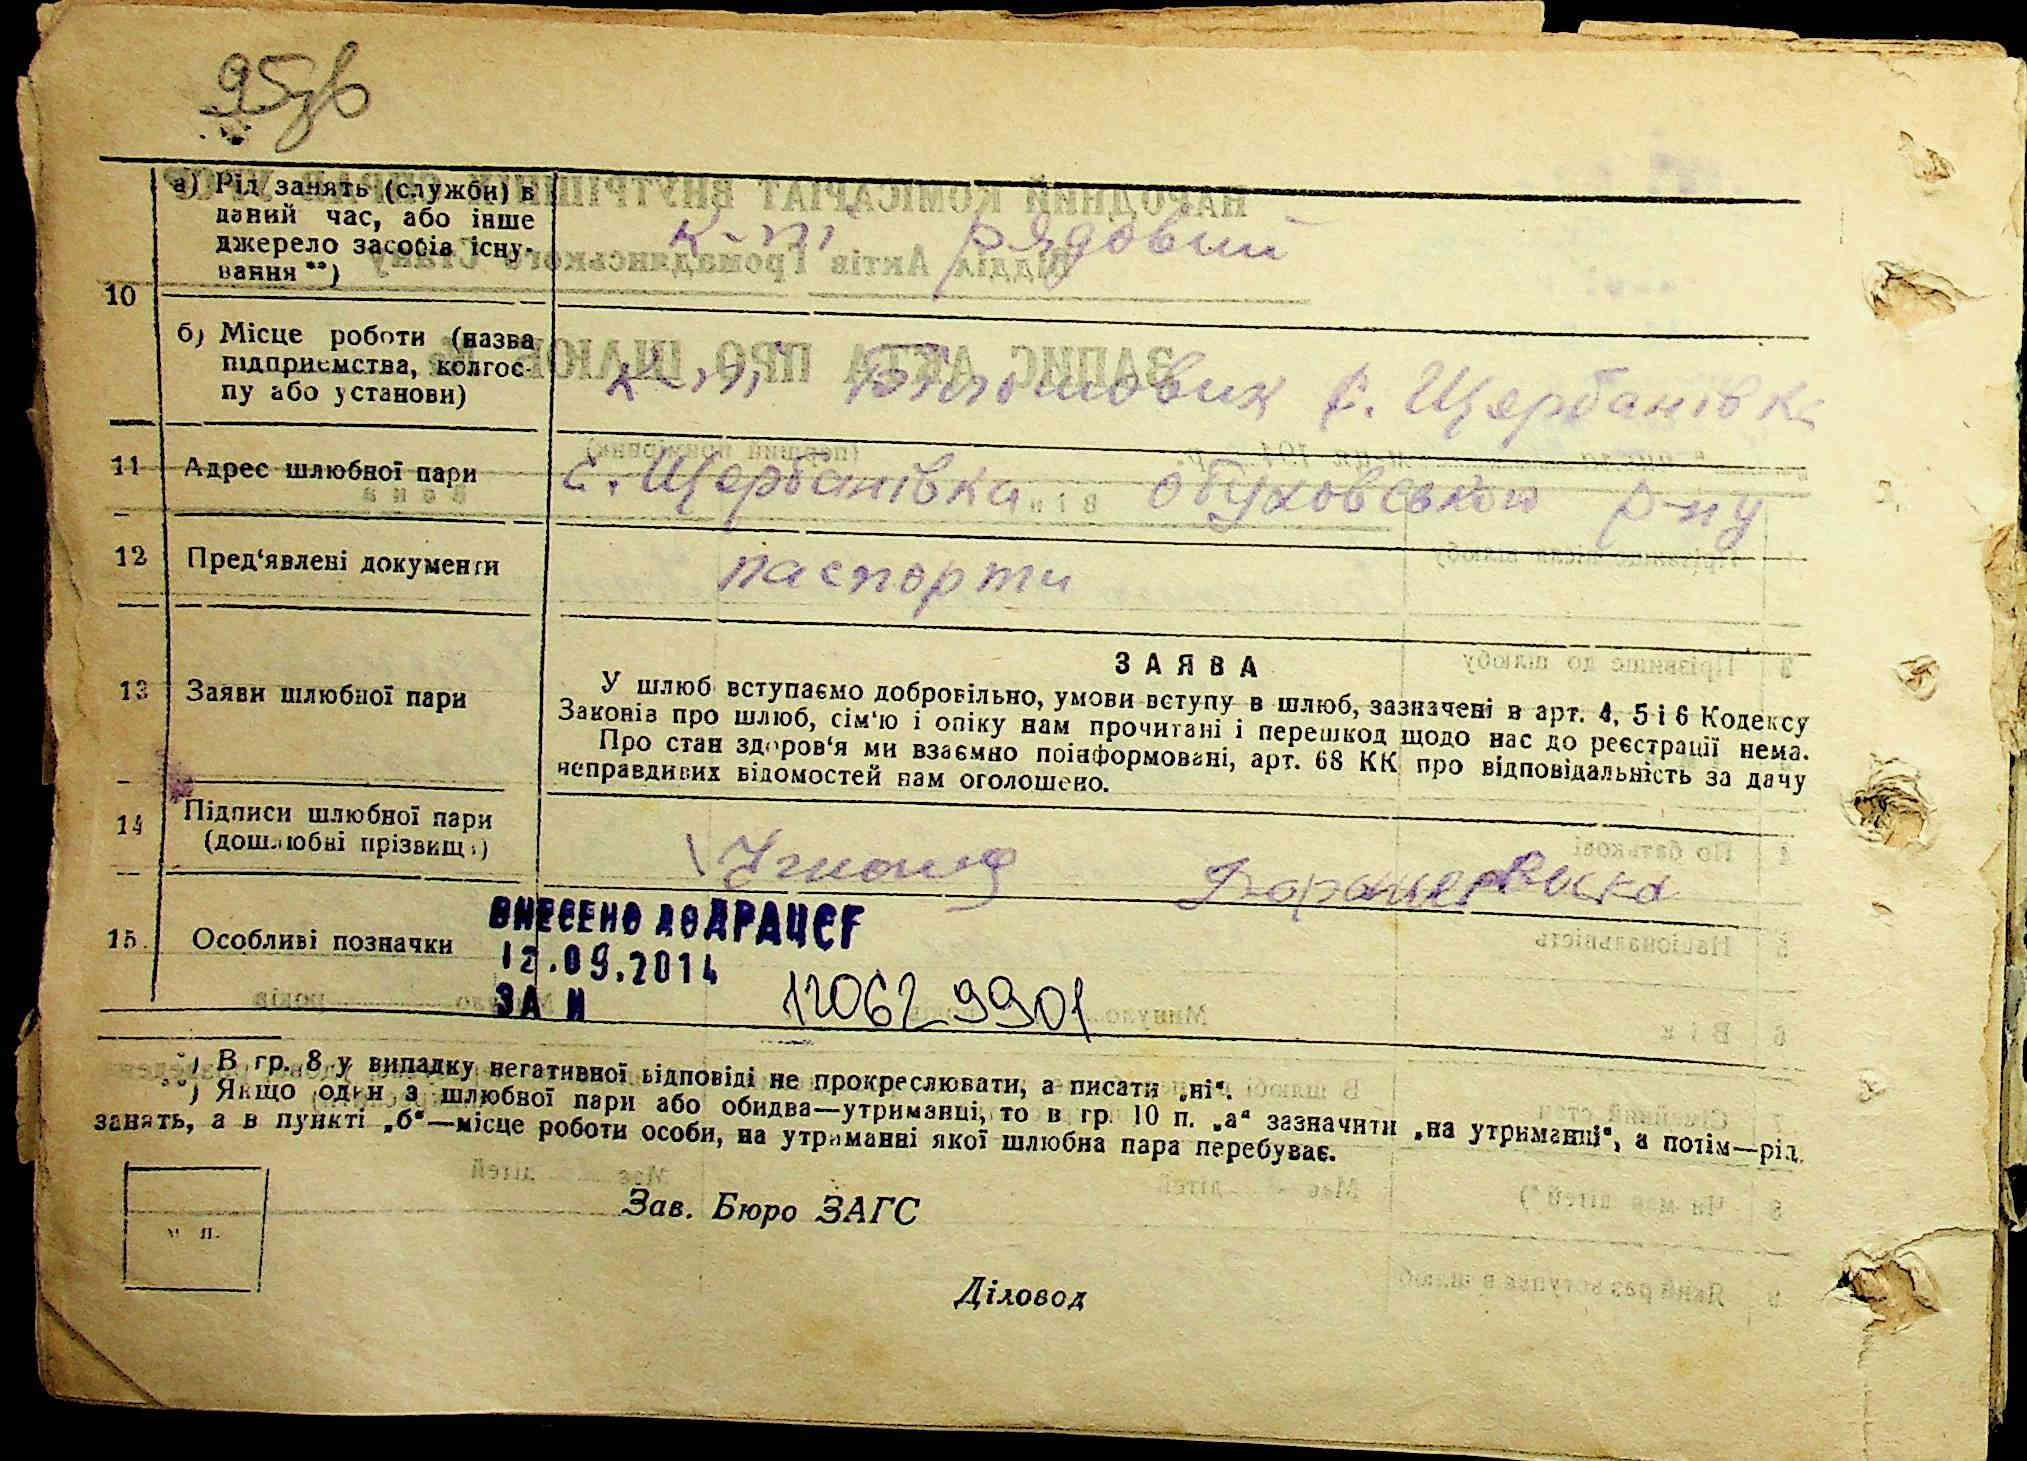 95зв
а) Рід занять (служби) в
даний час, або інше
джерело засобів існу-
вання **)
к-п рядовий
10
б) Місце роботи (назва
підприємства, колгос-
пу або установи)
к-п Більшовик с. Щербанівка
11 Адрес шлюбної пари
с. Щербанівка обуховського р-ну
12 Пред'явлені документи
паспорти
13 Заяви шлюбної пари
ЗАЯВА
У шлюб вступаємо добровільно, умови вступу в шлюб, зазначені в арт. 4, 5 і 6 Кодексу
Законів про шлюб, сім'ю і опіку нам прочитані і перешкод щодо нас до реєстрації нема.
Про стан здоров'я ми взаємно поінформовані, арт. 68 КК про відповідальність за дачу
неправдивих відомостей нам оголошено.
14 Підписи шлюбної пари
(дошлюбні прізвища)
15. Особливі позначки
ВНЕСЕНО ДО ДРАЦСГ
12.09.2014
ЗА N 120629901
*) В гр. 8 у випадку негативної відповіді не прокреслювати, а писати „ні“.
**) Якщо один з шлюбної пари або обидва—утриманці, то в гр. 10 п. „а“ зазначити „на утриманні“, а потім—рід
занять, а в пункті „б“—місце роботи особи, на утриманні якої шлюбна пара перебуває.
м п.
Зав. Бюро ЗАГС
Діловод